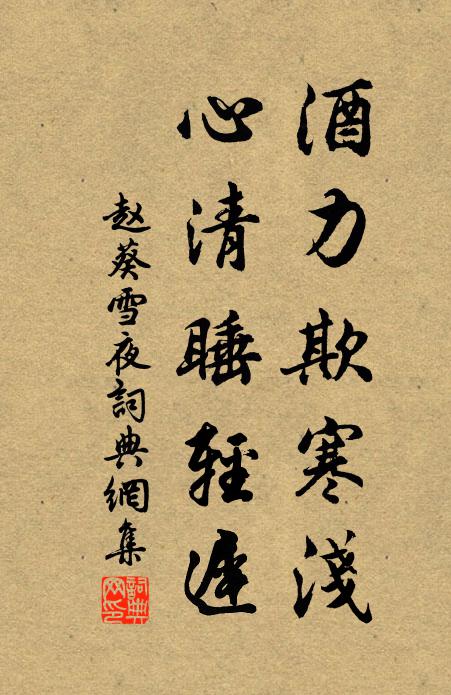 酒力欺寒淺
心清睡輕遲
赵葵雪夜詞典網集
詞典网印